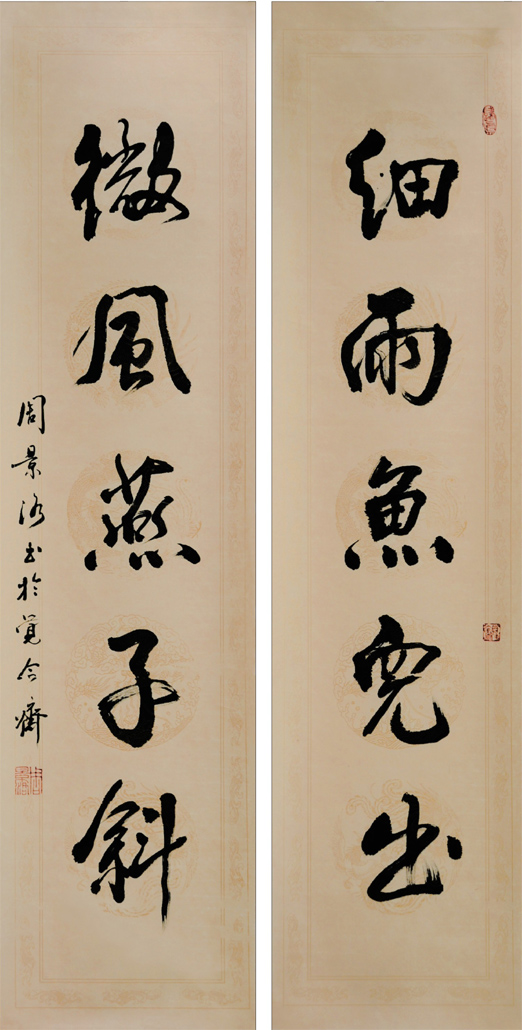 细雨魚兒出
微風燕子斜
周景洛書於覺今齋